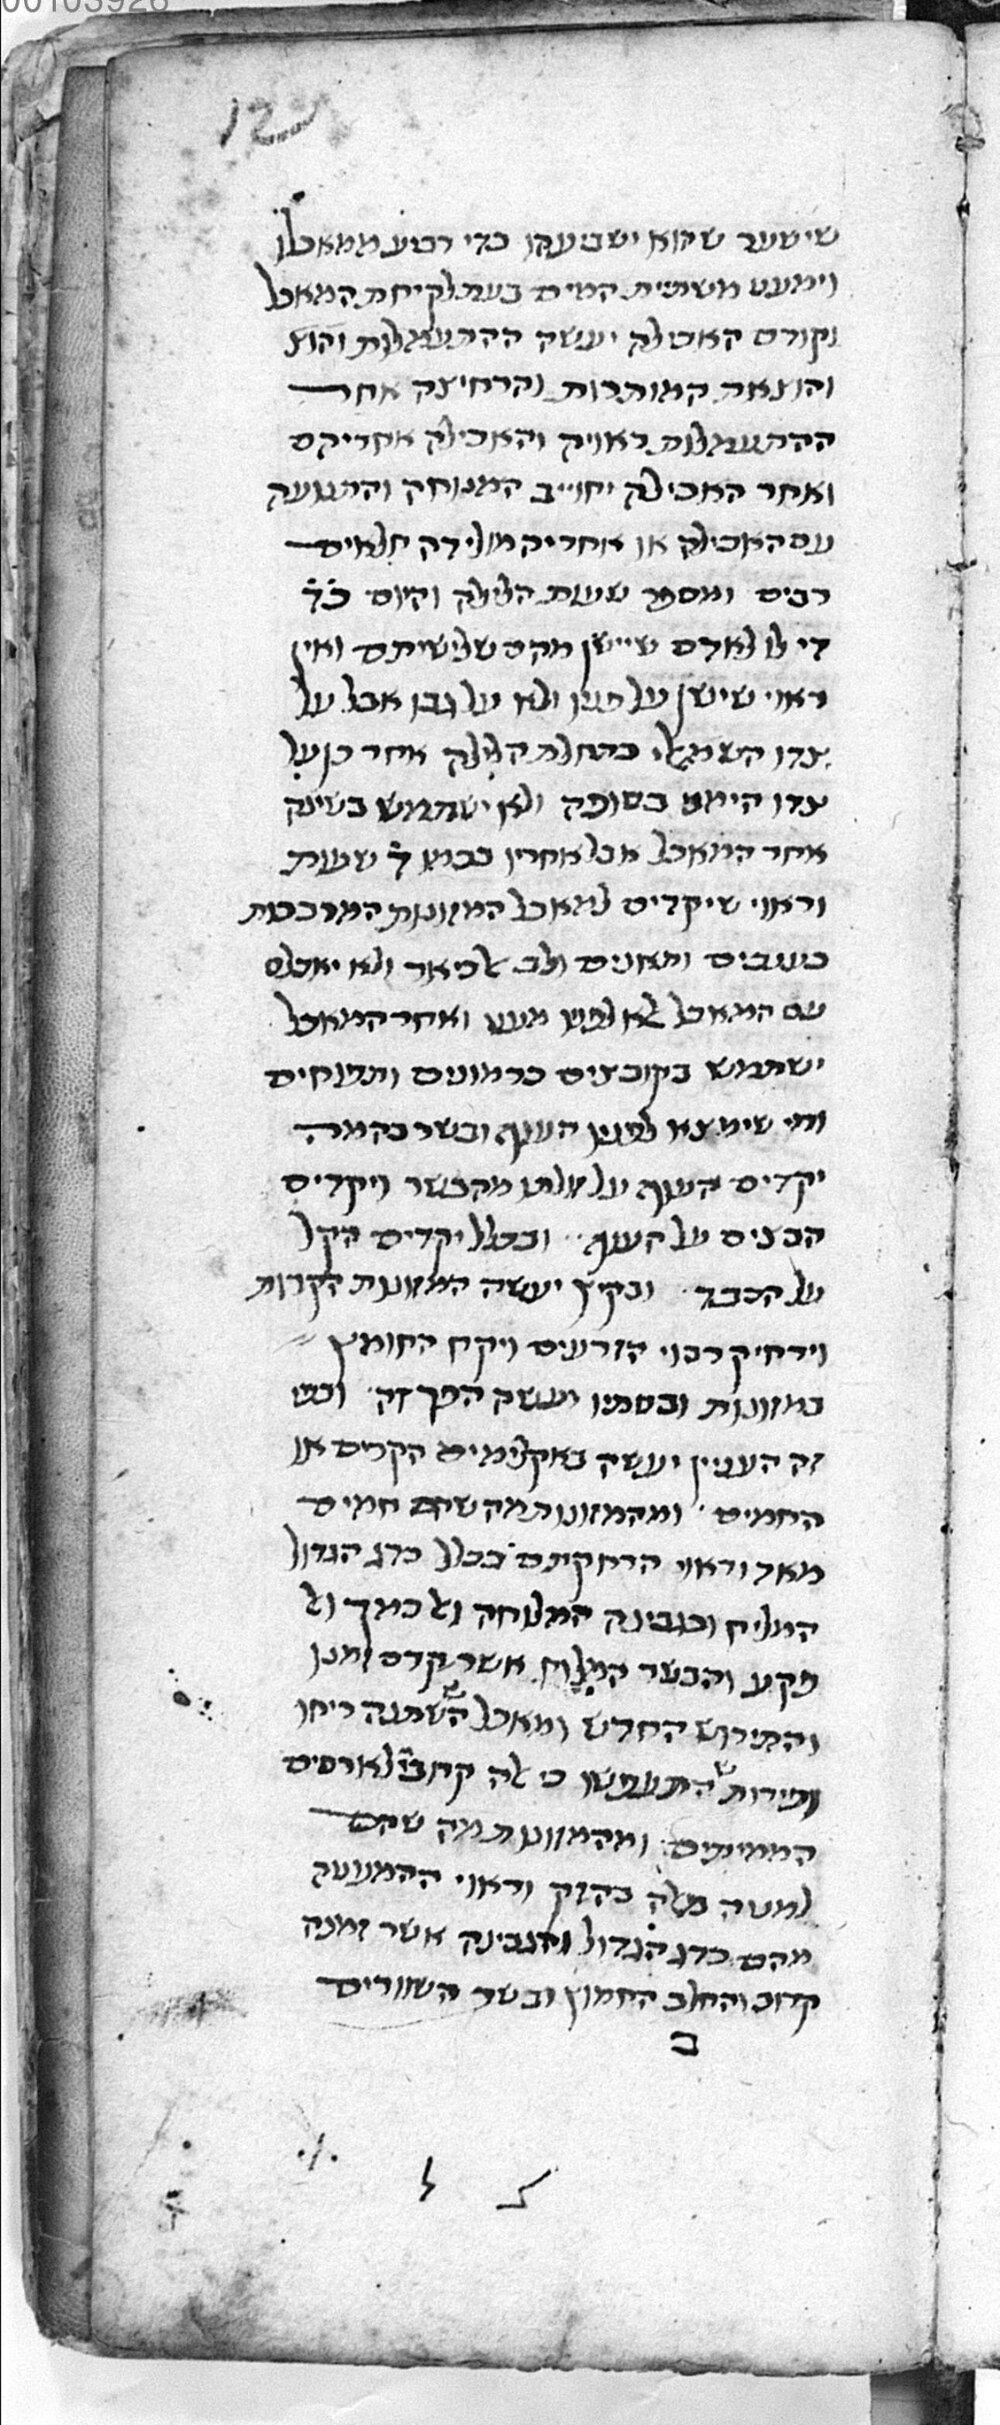 00103926
שישער שהוא ישביעהו כדי רביע ממאכלו
וימעט משתית המים בעת לקיחת המאכל
וקודם האכילה יעשה ההתעמלות והוצ
והוצאת המותרות והרחיצה אחר
ההתעמלות ראויה והאכילה אחריהם
ואחר האכילה יחוייב המנוחה והתנועה
עם האכילה או אחריה מולידה חלאים
רבים ומספר שעות הלילה והיום כ̇ד̇
די לו לאדם שיישן מהם שלישיתם ואין
ראוי שישן על פניו ולא על גבו אבל על
צדו השמאלי בתחלת הלילה אחר כן על
צדו הימני בסופה ולא ישתמש בשינה
אחר המאכל אבל אחריו כמו ד̇ שעות
וראוי שיקדים למאכל המזונות המרככות
כענבים ותאנים ולא יאכלם
עם המאכל אלא מעט ואחר המאכל
ישתמש בקובצים כרמונים ותפוחים
ומי שימצא לפניו העוף ובשר בהמה
יקדים העוף על זולתו מהבשר ויקדים
הבצים על העוף ובכלל יקדים הקל
על הכבד ובקיץ יעשה המזונות הקרות
וירחיק רבוי הזרעים ויקח החומץ
במזונות ובסתיו יעשה הפך זה וכמו
זה הענין יעשה באקלימים הקרים או
החמים ומהמזונות מה שהם חמים
מאד וראוי הרחקתם בכלל כדג הגדול
המליח והגבינה המלוחה
פקע והבשר המלוח אשר קדם זמנו
והתירוש החדש ומאכל שהשתנה ריחו
ופירות שהתעפשו כי אלה קרוב לארסים
הממיתים ומהמזונות מה שהם
למטה מאלה בהזק וראוי ההמעטה
מהם כדג הגדול והגבינה אשר זמנה
קרוב והחלב החמוץ ובשר השוורים
ב